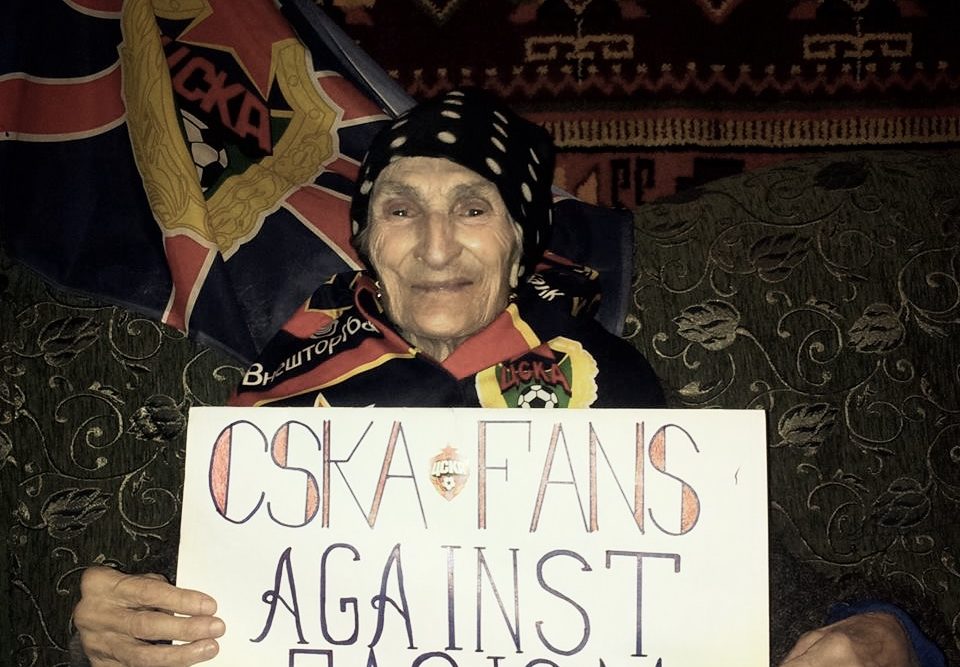 ЦСКА
Внешторгба
ЦСКА
CSKA ЦСКА FANS
AGAINST